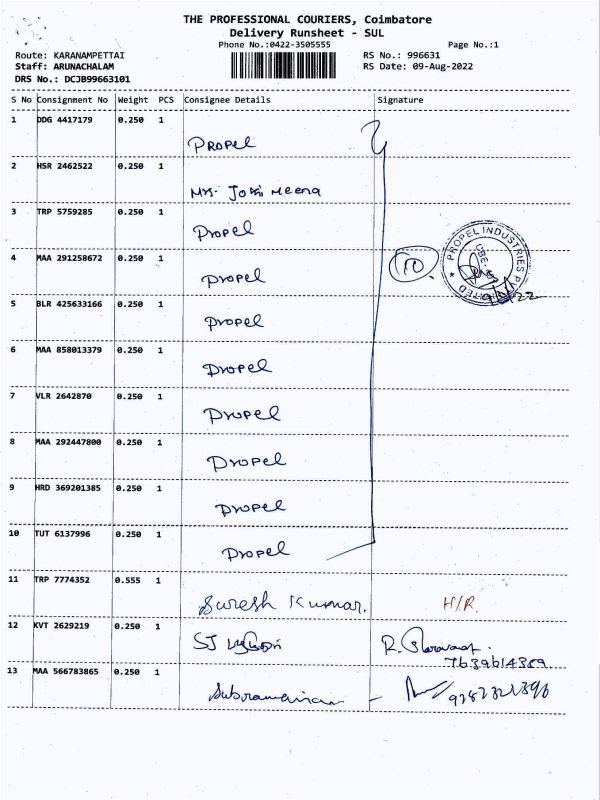 THE PROFESSIONAL COURIERS, Coimbatore
Delivery Runsheet - SUL
Phone No.:0422-3505555 Page No.:1
Route: KARANAMPETTAI RS No.: 996631
Staff: ARUNACHALAM RS Date: 09-Aug-2022
DRS No.: DCJB99663101
S No Consignment No Weight PCS Consignee Details Signature
1 DDG 4417179 0.250 1
PROPEL
2 HSR 2462522 0.250 1
Mrs. Jothi Meena
3 TRP 5759285 0.250 1
Propel
PROPEL INDUSTRIES
4 MAA 291258672 0.250 1
Propel
10
5 BLR 425633166 0.250 1
Propel
6 MAA 858013379 0.250 1
Propel
7 VLR 2642870 0.250 1
Propel
8 MAA 292447800 0.250 1
Propel
9 HRD 369201385 0.250 1
Propel
10 TUT 6137996 0.250 1
Propel
11 TRP 7774352 0.555 1
Suresh Kumar. H/R.
12 KVT 2629219 0.250 1
SJ R.
13 MAA 566783865 0.250 1
Subramanian